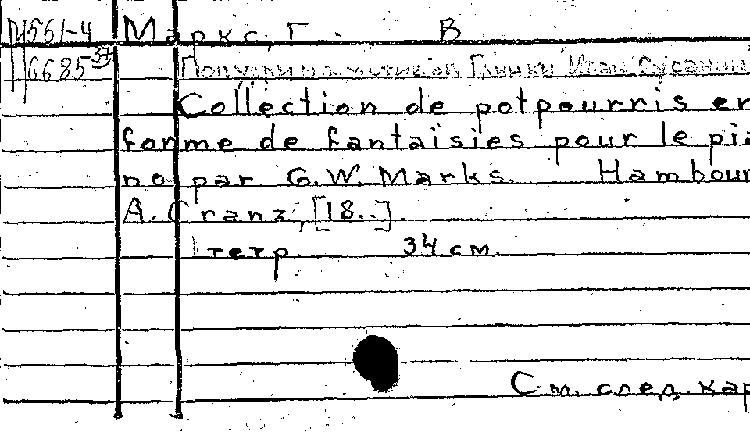 М561-4 Маркс, Г. В
Попурри на мотивы Глинки Иван Сусанин
Collection de potpourris en
forme de fantaisies pour le pia
no par G.W. Marks. Hambour
A. Cranz, [18..].
1 тетр. 34 см.
См. след. кар